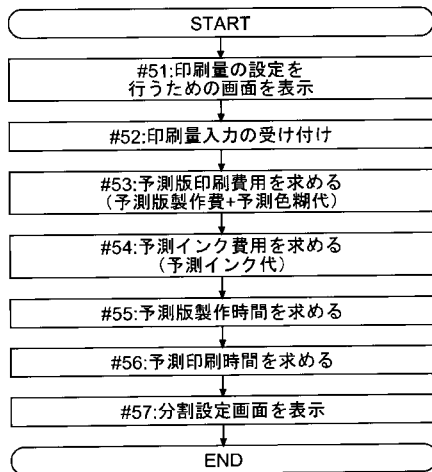 START
#51:印刷量の設定を
行うための画面を表示
#52:印刷量入力の受け付け
#53:予測版印刷費用を求める
(予測版製作費+予測色糊代)
#54:予測インク費用を求める
(予測インク代)
#55:予測版製作時間を求める
#56:予測印刷時間を求める
#57:分割設定画面を表示
END